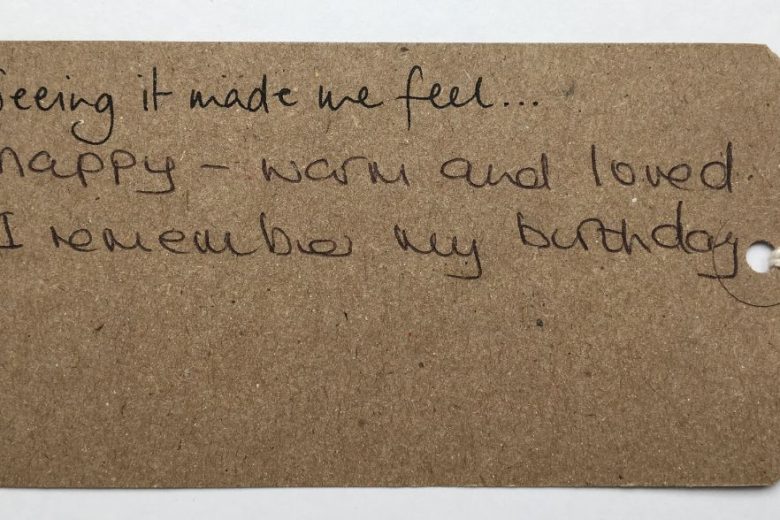 Seeing it made me feel...
happy - warm and loved.
I remember my birthday